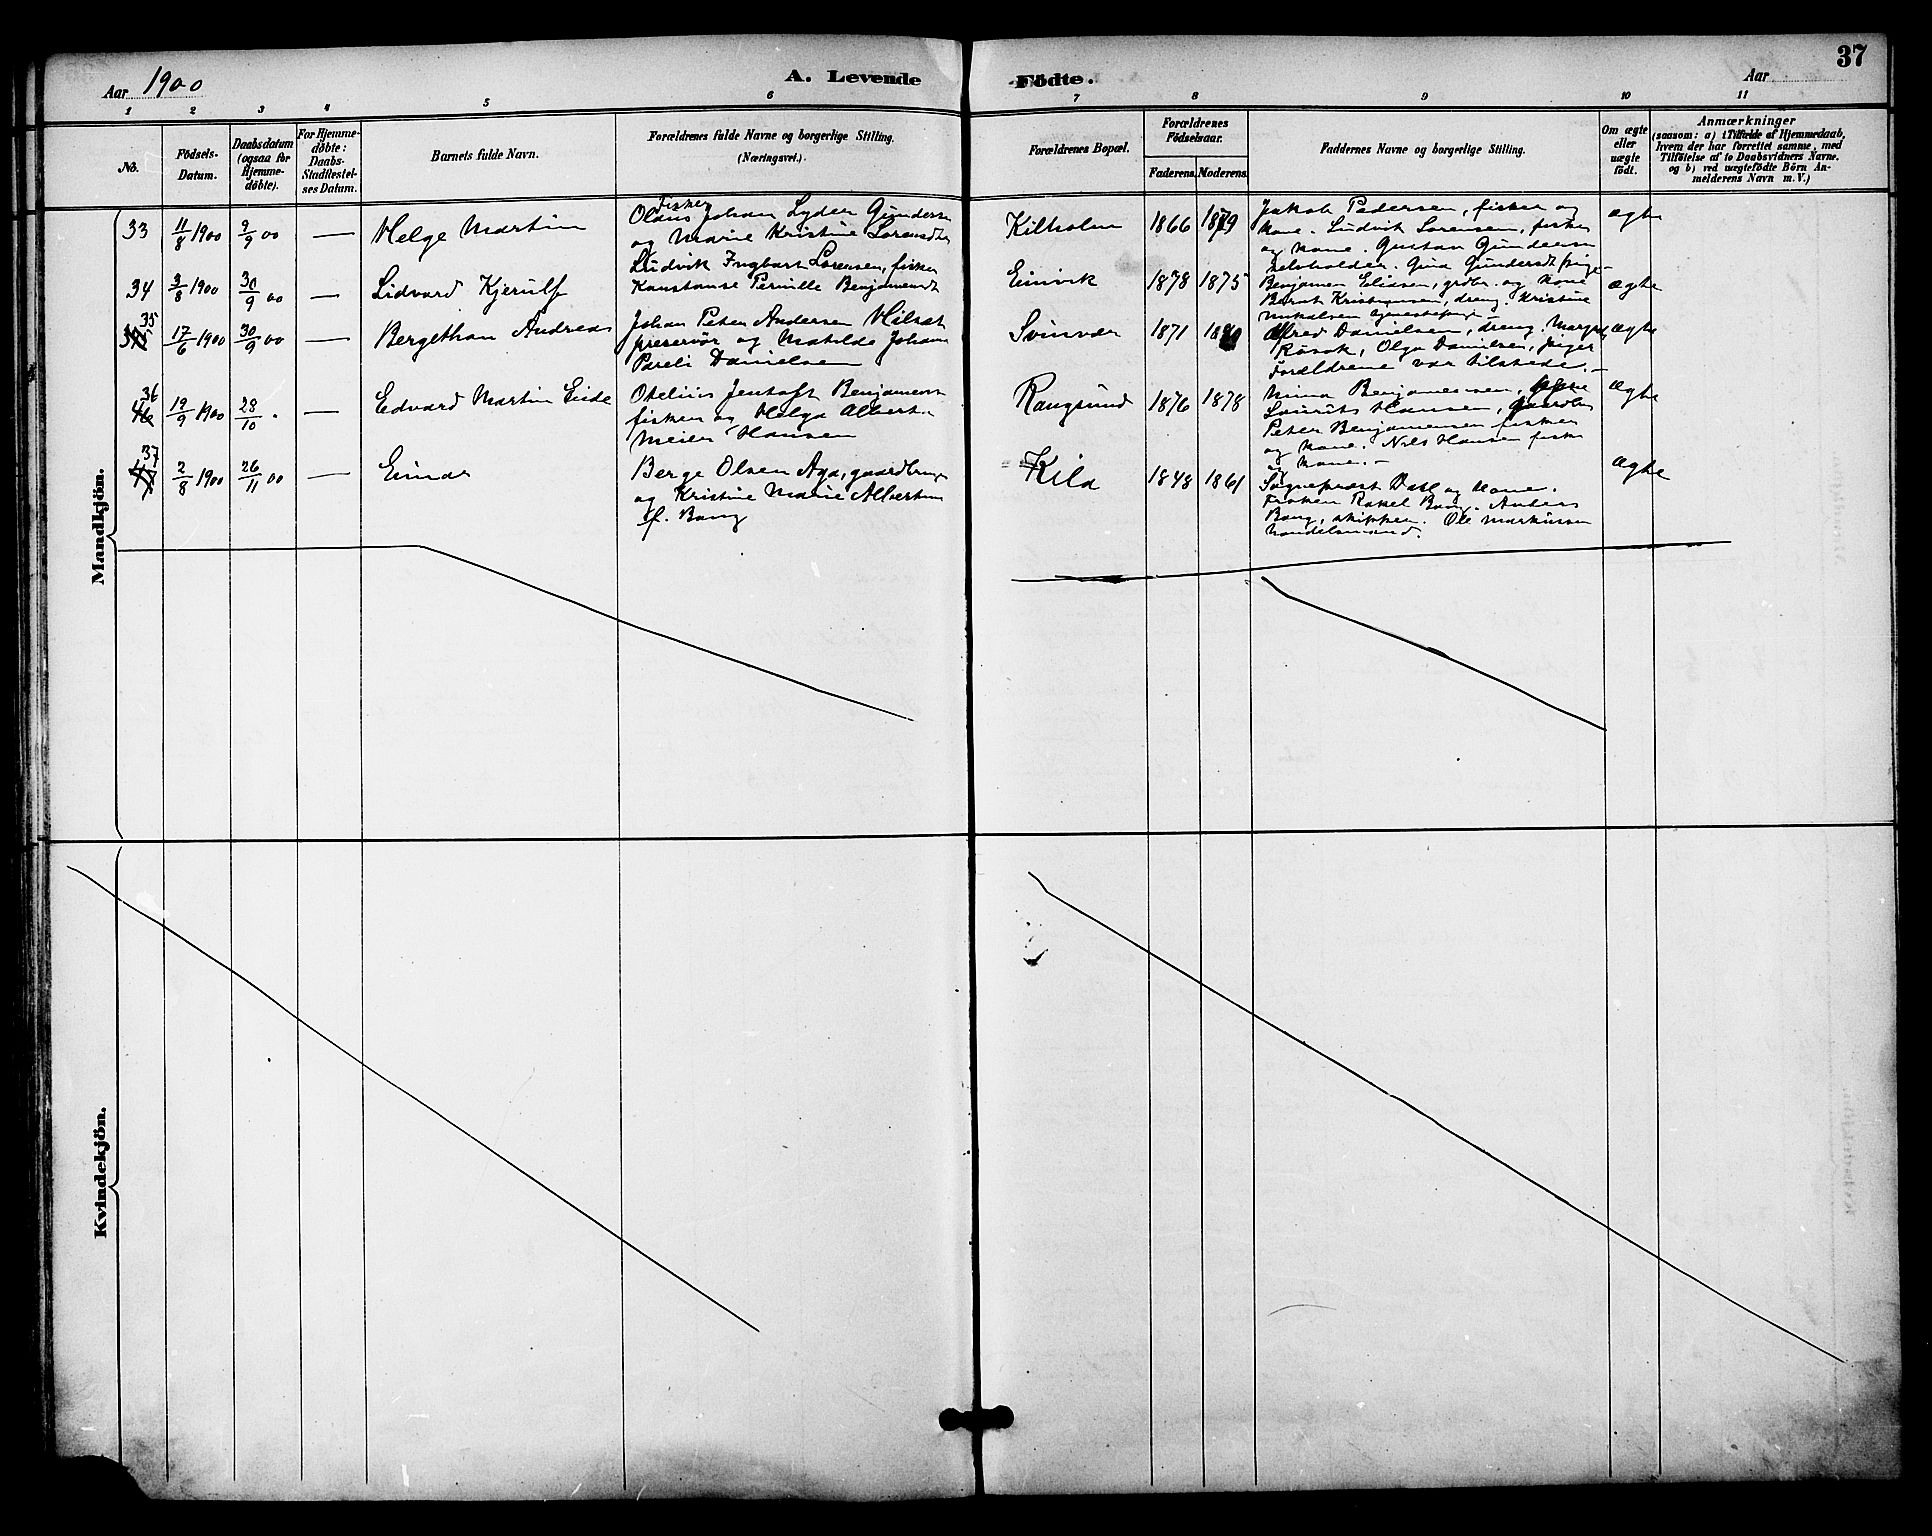 37
Aar 1900
A. Levende
Födte.
Aar
1 2 3 4 5 6 7 8 9 10 11
No.
Födsels-
Datum.
Daabsdatum
(ogsaa for
Hjemme-
döbte).
For Hjemme-
döbte:
Daabs-
Stadfæstel-
ses Datum.
Barnets fulde Navn.
Forældrenes fulde Navne og borgerlige Stilling.
(Næringsvei.)
Forældrenes Bopæl.
Forældrenes
Födselsaar.
Faderens. Moderens.
Faddernes Navne og borgerlige Stilling.
Om ægte
eller
uægte
födt.
Anmærkninger
(saasom: a) i Tilfælde af Hjemmedaab,
hvem der har forrettet samme, med
Tilföielse af to Daabsvidners Navne.
og b) ved uægtefödte Börn An-
melderens Navn m. V.)
Mandkjön.
33 11/8 1900 9/9 00 — Helge Martin
Fisker
Olaus Johan Lyder Gunders
og Marie Kristine Sörensdtr
Kilholm 1866 1879
Jakob Pedersen, fisker og
kone. Ludvik Sörensen, fisker
og kone. Gustav Gundersen
Gina Gundersdt pige
ægte
34 3/8 1900 30/9 00 — Lidvard Kjerulf
Ludvik Ingbart Sörensen, fisker
Konstanse Pernille Benjaminsdt
Einvik 1878 1875
Benjamin Eliasen, grdbr. og kone
Bernt Kristiansen, dreng. Kristine
ægte
35 17/6 1900 30/9 00 — Bergethon Andreas
Johan Peter Andersen Hilsæt
preservör og Matilde Johan
Pareli Danielsen
Svinvær 1871
Alfred Danielsen, dreng. Margret
Olga Danielsen, piger
Forældrene var tilstede. —
ægte
36
46 19/9 1900 28/10 . — Edvard Martin Eide
Otelius Jentoft Benjaminsen
fisker og Helga Alberta
Meier Hansen
Rangsund 1876 1878
Mina Benjaminsen,
Laurits Hansen, gaardbr
Peter Benjaminsen fisker
og kone. Nils Hansen fisker
og kone. —
ægte
37
2/8 1900 26/11 00 — Einar
Berge Olsen Aga, gaardbruger
og Kristine Marie Albertine
f. Bang
Kila 1848 1861
Sognepræst Dahl og kone.
Fröken Rakel Bang. Anders
Bang, skipper. Ole Markussen
handelsmand.
ægte
Kvindekjön.